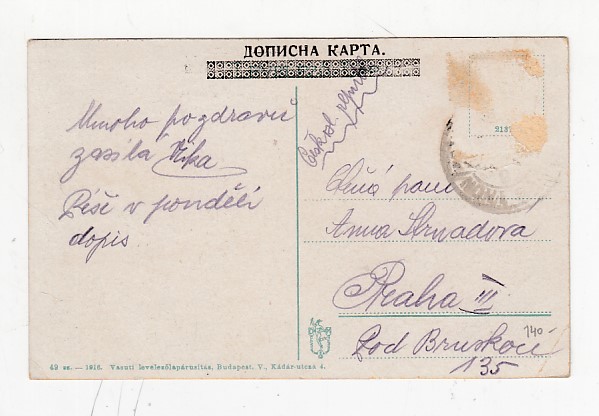 ДОПИСНА КАРТА.
Mnoho pozdravů
zasílá
Píši v pondělí
dopis.
Českol.
2137
Ctěná paní
Anna Strnadova
Praha III
140
Pod Bruskou
135
49 sz. — 1916. Vasuti levelezőlapárusitás, Budapest, V., Kádár-utcza 4.